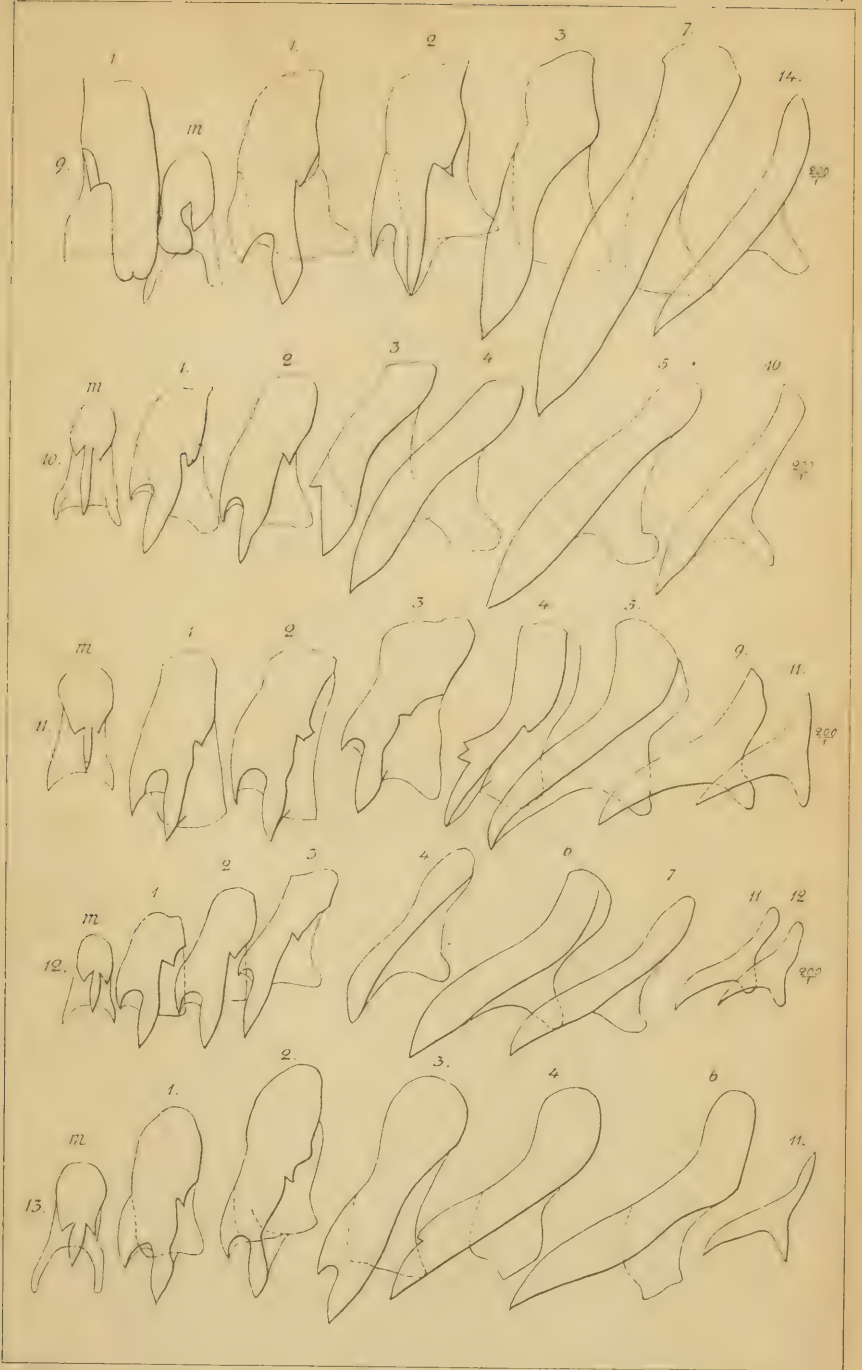 1 1. 2 3 7. 14.
9. m 200/1
m 1. 2 3 4 5 10.
10. 200/1
m 1 2 3 4 5. 9. 11.
11. 200/1
m 1 2 3 4 6 7 11 12
12. 200/1
m 1. 2. 3. 4 6 11.
13.